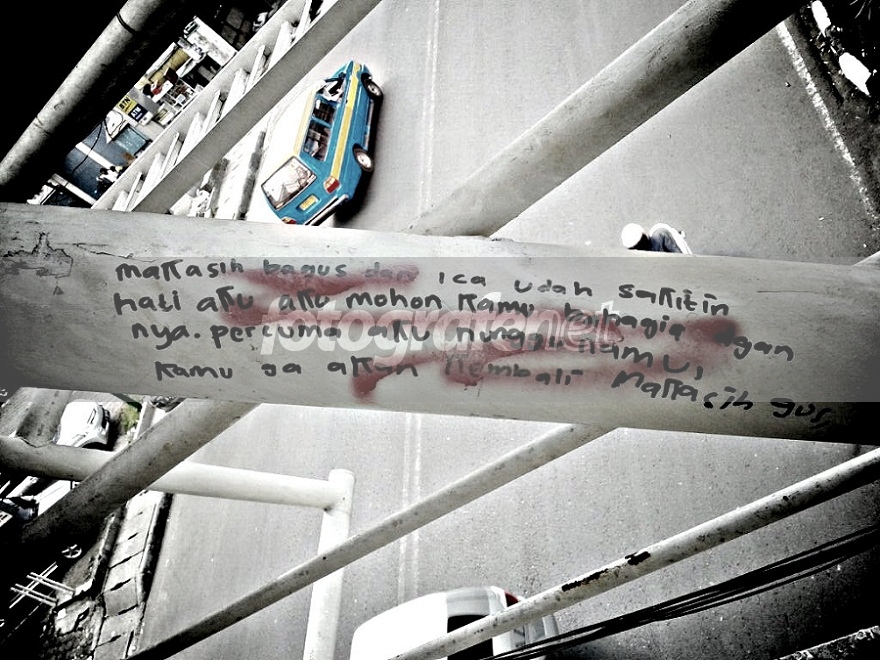 makasih bagus dan ica udah sakitin
hati aku aku mohon kamu bahagia dgan
nya. percuma aku nunggu kamu,
kamu ga akan kembali makasih gus
fotografer.net